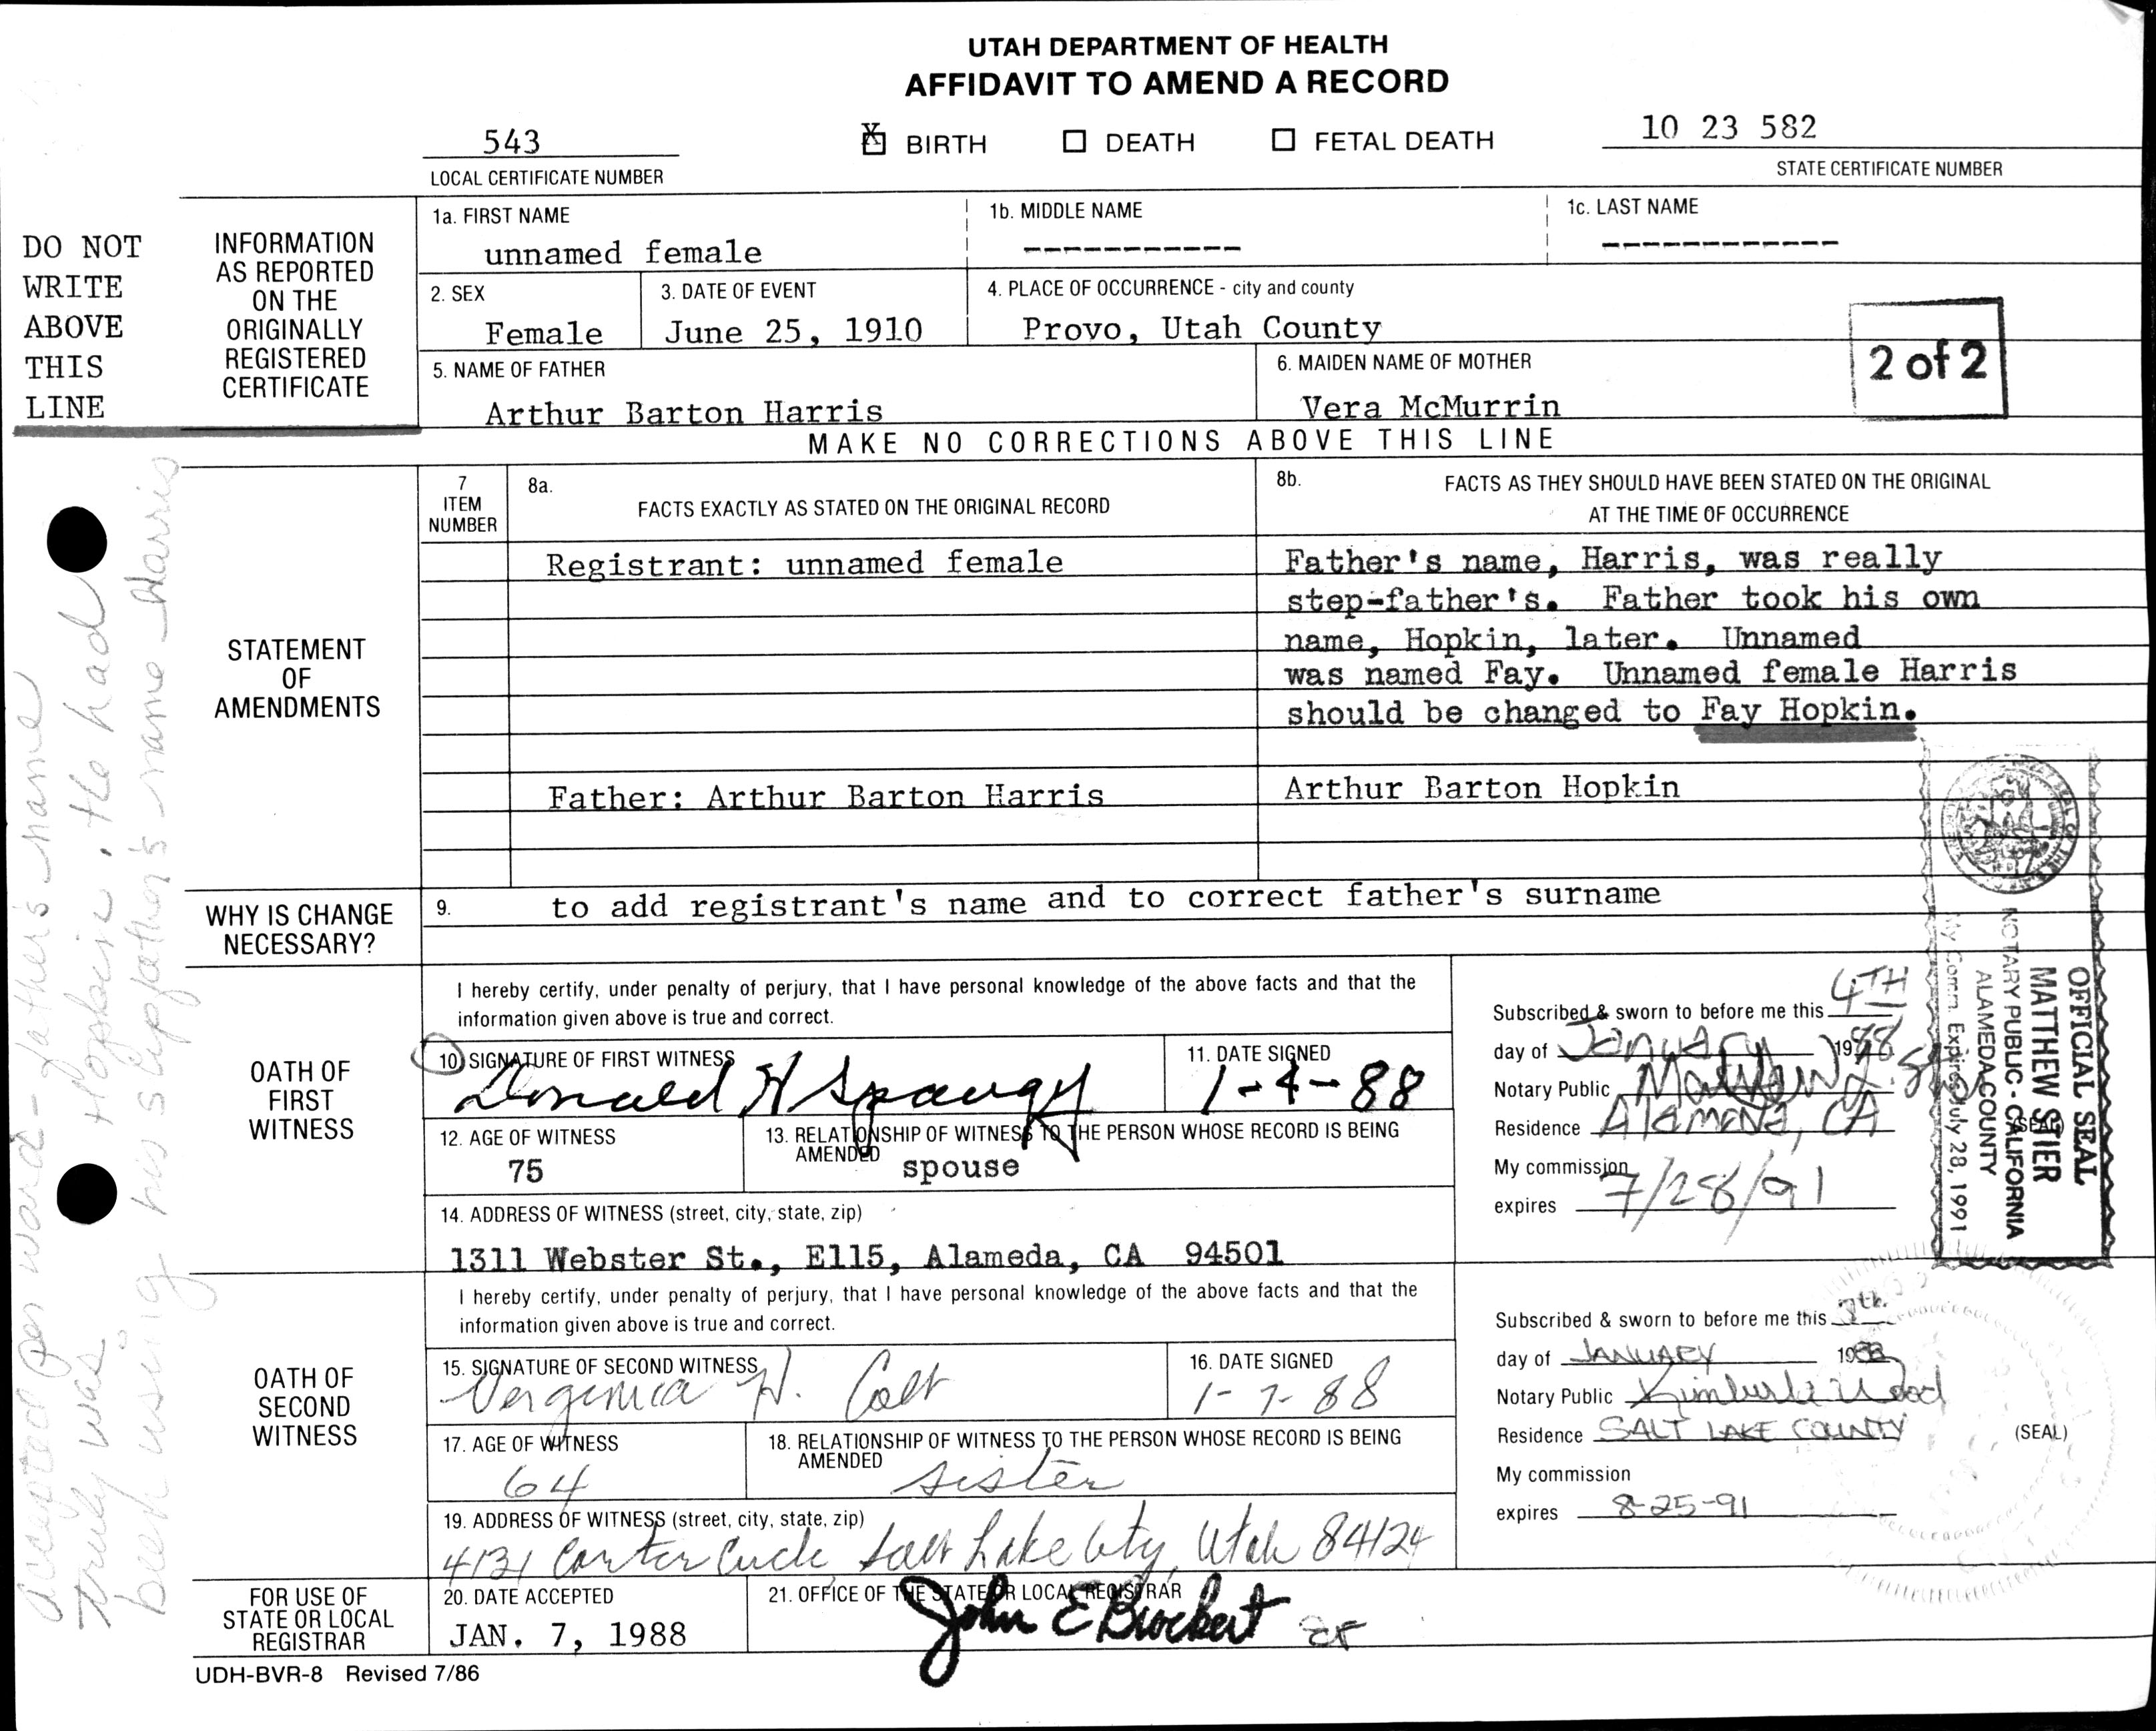 UTAH DEPARTMENT OF HEALTH
AFFIDAVIT TO AMEND A RECORD
543
LOCAL CERTIFICATE NUMBER
X BIRTH DEATH FETAL DEATH
10 23 582
STATE CERTIFICATE NUMBER
DO NOT
WRITE
ABOVE
THIS
LINE
INFORMATION
AS REPORTED
ON THE
ORIGINALLY
REGISTERED
CERTIFICATE
1a. FIRST NAME
unnamed female
1b. MIDDLE NAME
-----------
1c. LAST NAME
------------
2. SEX
Female
3. DATE OF EVENT
June 25, 1910
4. PLACE OF OCCURRENCE - city and county
Provo, Utah County
5. NAME OF FATHER
Arthur Barton Harris
6. MAIDEN NAME OF MOTHER
Vera McMurrin
2 of 2
MAKE NO CORRECTIONS ABOVE THIS LINE
STATEMENT
OF
AMENDMENTS
7
ITEM
NUMBER
8a.
FACTS EXACTLY AS STATED ON THE ORIGINAL RECORD
8b.
FACTS AS THEY SHOULD HAVE BEEN STATED ON THE ORIGINAL
AT THE TIME OF OCCURRENCE
Registrant: unnamed female
Father's name, Harris, was really
step-father's. Father took his own
name, Hopkin, later. Unnamed
was named Fay. Unnamed female Harris
should be changed to Fay Hopkin.
Father: Arthur Barton Harris
Arthur Barton Hopkin
WHY IS CHANGE
NECESSARY?
9.
to add registrant's name and to correct father's surname
OATH OF
FIRST
WITNESS
I hereby certify, under penalty of perjury, that I have personal knowledge of the above facts and that the
information given above is true and correct.
10. SIGNATURE OF FIRST WITNESS
Donald H Spaugy
11. DATE SIGNED
1-4-88
12. AGE OF WITNESS
75
13. RELATIONSHIP OF WITNESS TO THE PERSON WHOSE RECORD IS BEING
AMENDED
spouse
14. ADDRESS OF WITNESS (street, city, state, zip)
1311 Webster St., E115, Alameda, CA 94501
Subscribed & sworn to before me this 4TH
day of January 1988
Notary Public Matthew
Residence Alameda, CA
My commission
expires 7/28/91
(SEAL)
OFFICIAL SEAL
MATTHEW STIER
NOTARY PUBLIC - CALIFORNIA
ALAMEDA COUNTY
My Comm. Expires July 28, 1991
OATH OF
SECOND
WITNESS
I hereby certify, under penalty of perjury, that I have personal knowledge of the above facts and that the
information given above is true and correct.
15. SIGNATURE OF SECOND WITNESS
Verginia H. Colt
16. DATE SIGNED
1-7-88
17. AGE OF WITNESS
64
18. RELATIONSHIP OF WITNESS TO THE PERSON WHOSE RECORD IS BEING
AMENDED
sister
19. ADDRESS OF WITNESS (street, city, state, zip)
4131 Circle, Salt Lake City, Utah 84124
Subscribed & sworn to before me this 7th
day of JANUARY 1988
Notary Public Wood
Residence SALT LAKE COUNTY
My commission
expires 8-25-91
(SEAL)
FOR USE OF
STATE OR LOCAL
REGISTRAR
20. DATE ACCEPTED
JAN. 7, 1988
21. OFFICE OF THE STATE OR LOCAL REGISTRAR
John E Brockert
UDH-BVR-8 Revised 7/86
accepted per ward - father's name
truly was Hopkin. He had
been using his stepfather's name Harris